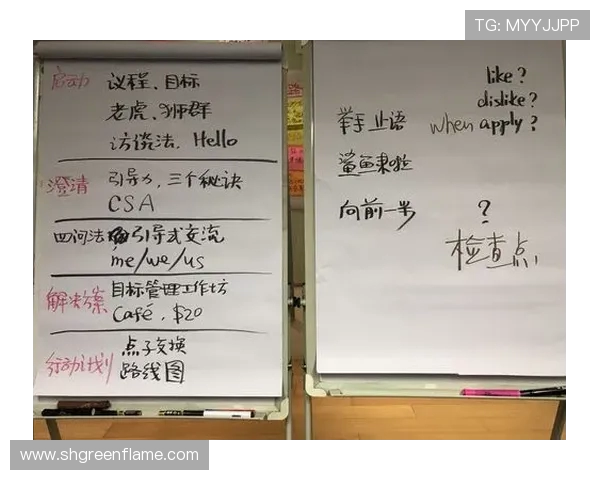 TG: MYYJJPP
启动 议程、目标
老虎、狮群
访谈法、Hello
澄清 引导力,三个秘诀
CSA
四问法 引导式交流
me/we/us
解决方案 目标管理工作坊
Café, $20
行动计划 点子交换
路线图
like?
dislike?
举手止语 when apply?
鲨鱼来啦
向前一步 ?
检查点
www.shgreenflame.com